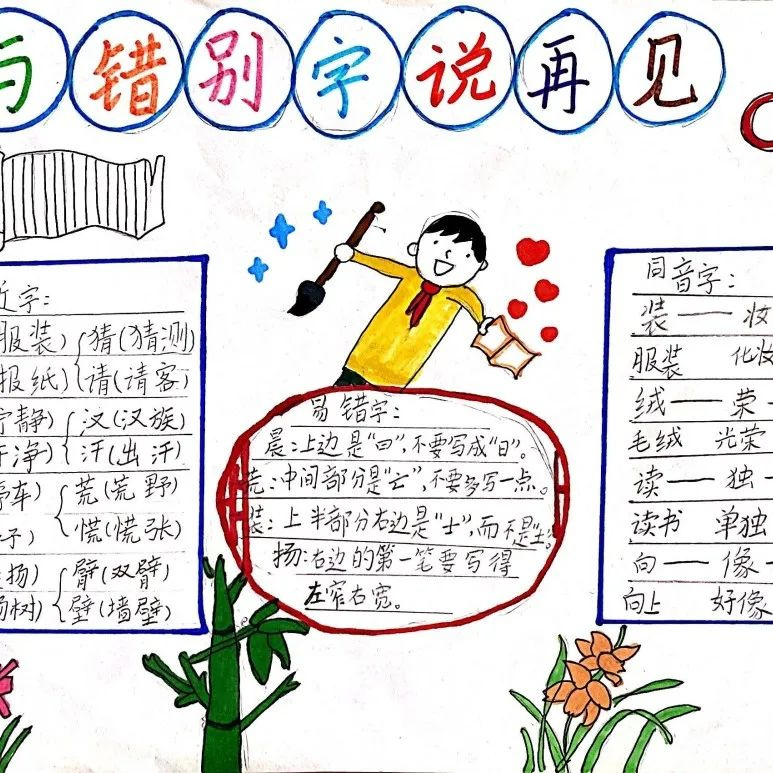 与错别字说再见
近字:
服装) 猜(猜测)
报纸) 请(请客)
宁静) 汉(汉族)
干净) 汗(出汗)
停车) 荒(荒野)
子) 慌(慌张)
扬) 臂(双臂)
杨树) 壁(墙壁)
易错字:
晨:上边是“曰”,不要写成“日”。
荒:中间部分是“亡”,不要多写一点。
装:上半部分右边是“士”,而不是“土”。
扬:右边的第一笔要写得
左窄右宽。
同音字:
装——妆
服装 化妆
绒——荣—
毛绒 光荣
读——独—
读书 单独
向——像—
向上 好像